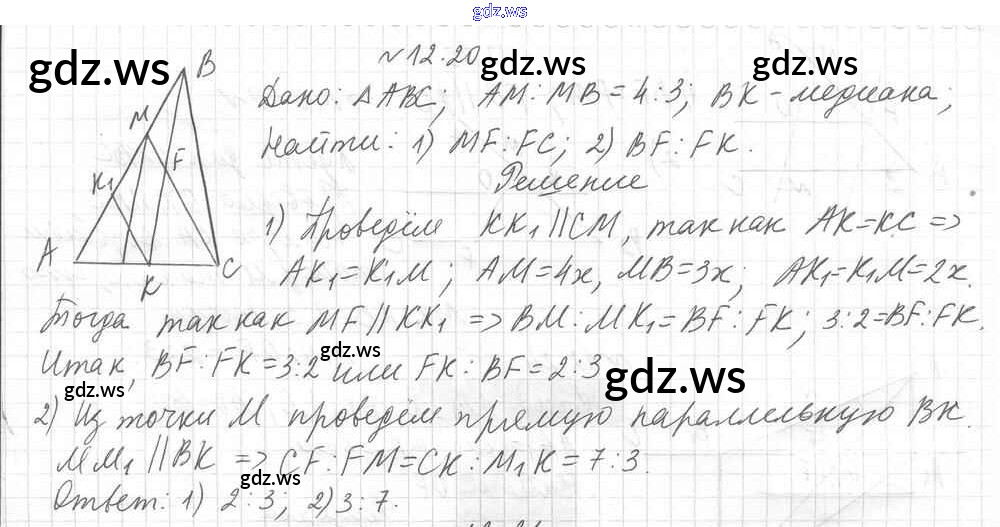 gdz.ws
№ 12.20
gdz.ws
gdz.ws
gdz.ws
Дано: △ABC; AM:MB=4:3; BK-медиана;
Найти: 1) MF:FC; 2) BF:FK.
Решение
1) Проведём KK₁ || CM, так как AK=KC =>
AK₁=K₁M; AM=4x, MB=3x; AK₁=K₁M=2x.
Тогда так как MF || KK₁ => BM:MK₁=BF:FK; 3:2=BF:FK.
Итак, BF:FK=3:2 или FK:BF=2:3
gdz.ws
gdz.ws
gdz.ws
2) Из точки M проведём прямую параллельную BK.
MM₁ || BK => CF:FM=CK:M₁K=7:3.
gdz.ws
gdz.ws
Ответ: 1) 2:3; 2) 3:7.
B
M
F
K₁
A
K
C